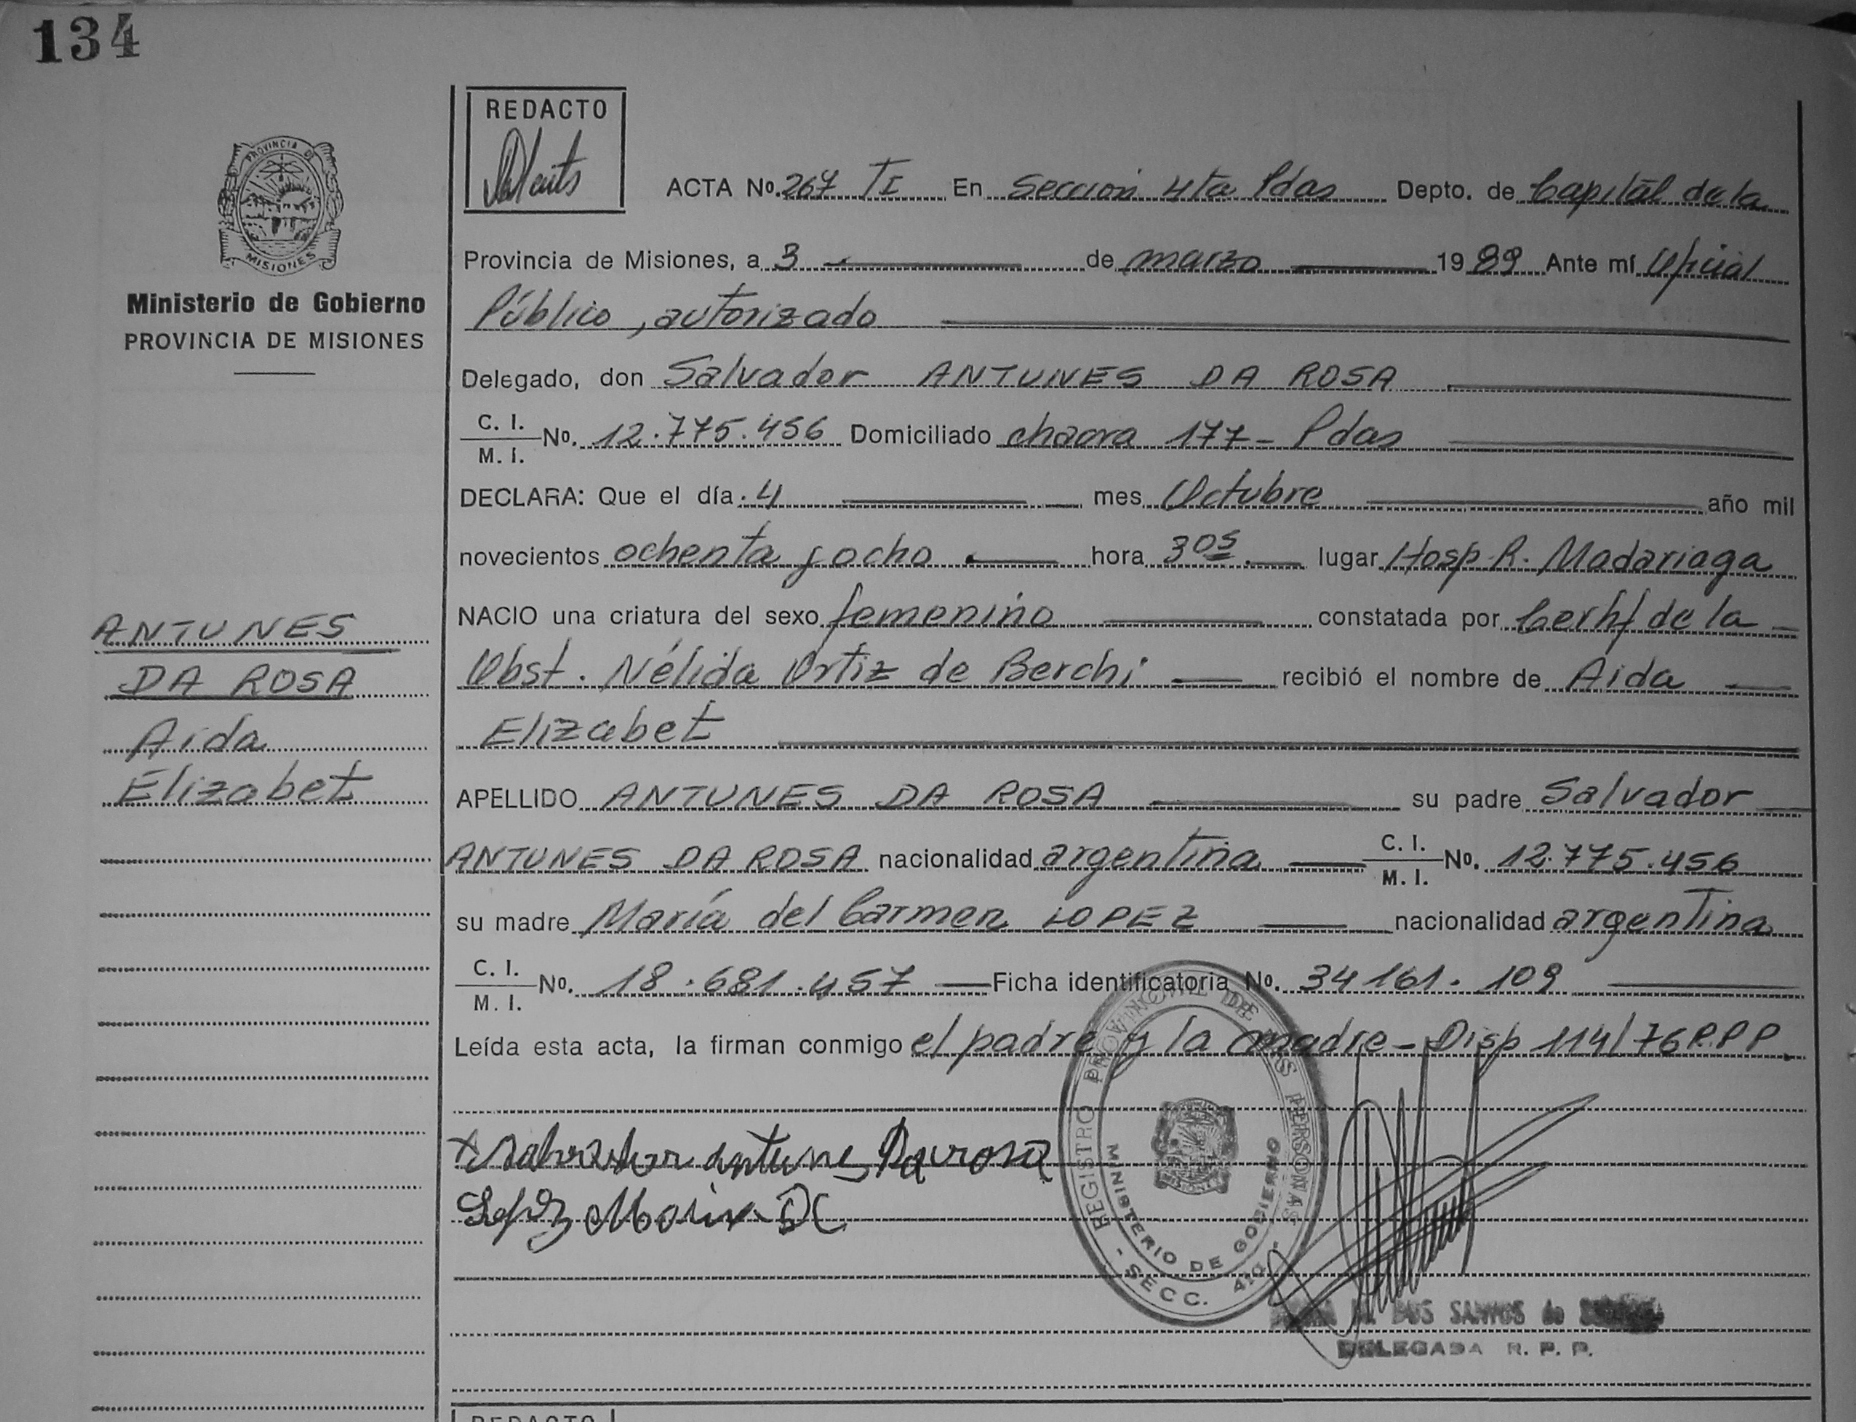 134
REDACTO
PROVINCIA DE
MISIONES
Ministerio de Gobierno
PROVINCIA DE MISIONES
ACTA No. 267 TI En Sección 4ta Pdas Depto. de Capital de la
Provincia de Misiones, a 3 de marzo 1989 Ante mí Oficial
Público, autorizado
Delegado, don Salvador ANTUNES DA ROSA
C. I.
M. I.
No. 12.775.456 Domiciliado chacra 177 - Pdas
DECLARA: Que el día 4 mes Octubre año mil
novecientos ochenta y ocho hora 3 05 lugar Hosp R. Madariaga
NACIO una criatura del sexo femenino constatada por Certif de la
Obst. Nélida Ortiz de Berchi recibió el nombre de Aida
Elizabet
APELLIDO ANTUNES DA ROSA su padre Salvador
ANTUNES DA ROSA nacionalidad argentina C. I. M. I. No. 12.775.456
su madre María del Carmen LOPEZ nacionalidad argentina
C. I.
M. I.
No. 18.681.457 Ficha identificatoria No. 34161.109
Leída esta acta, la firman conmigo el padre y la madre - Disp 114/76 R.P.P.
ANTUNES
DA ROSA
Aida
Elizabet
Salvador Antunes Da rosa
Lopez Maria DC
REGISTRO PROVINCIAL DE LAS PERSONAS
MINISTERIO DE GOBIERNO
- SECC. 4ta -
DOS SANTOS de
DELEGADA R. P. P.
REDACTO